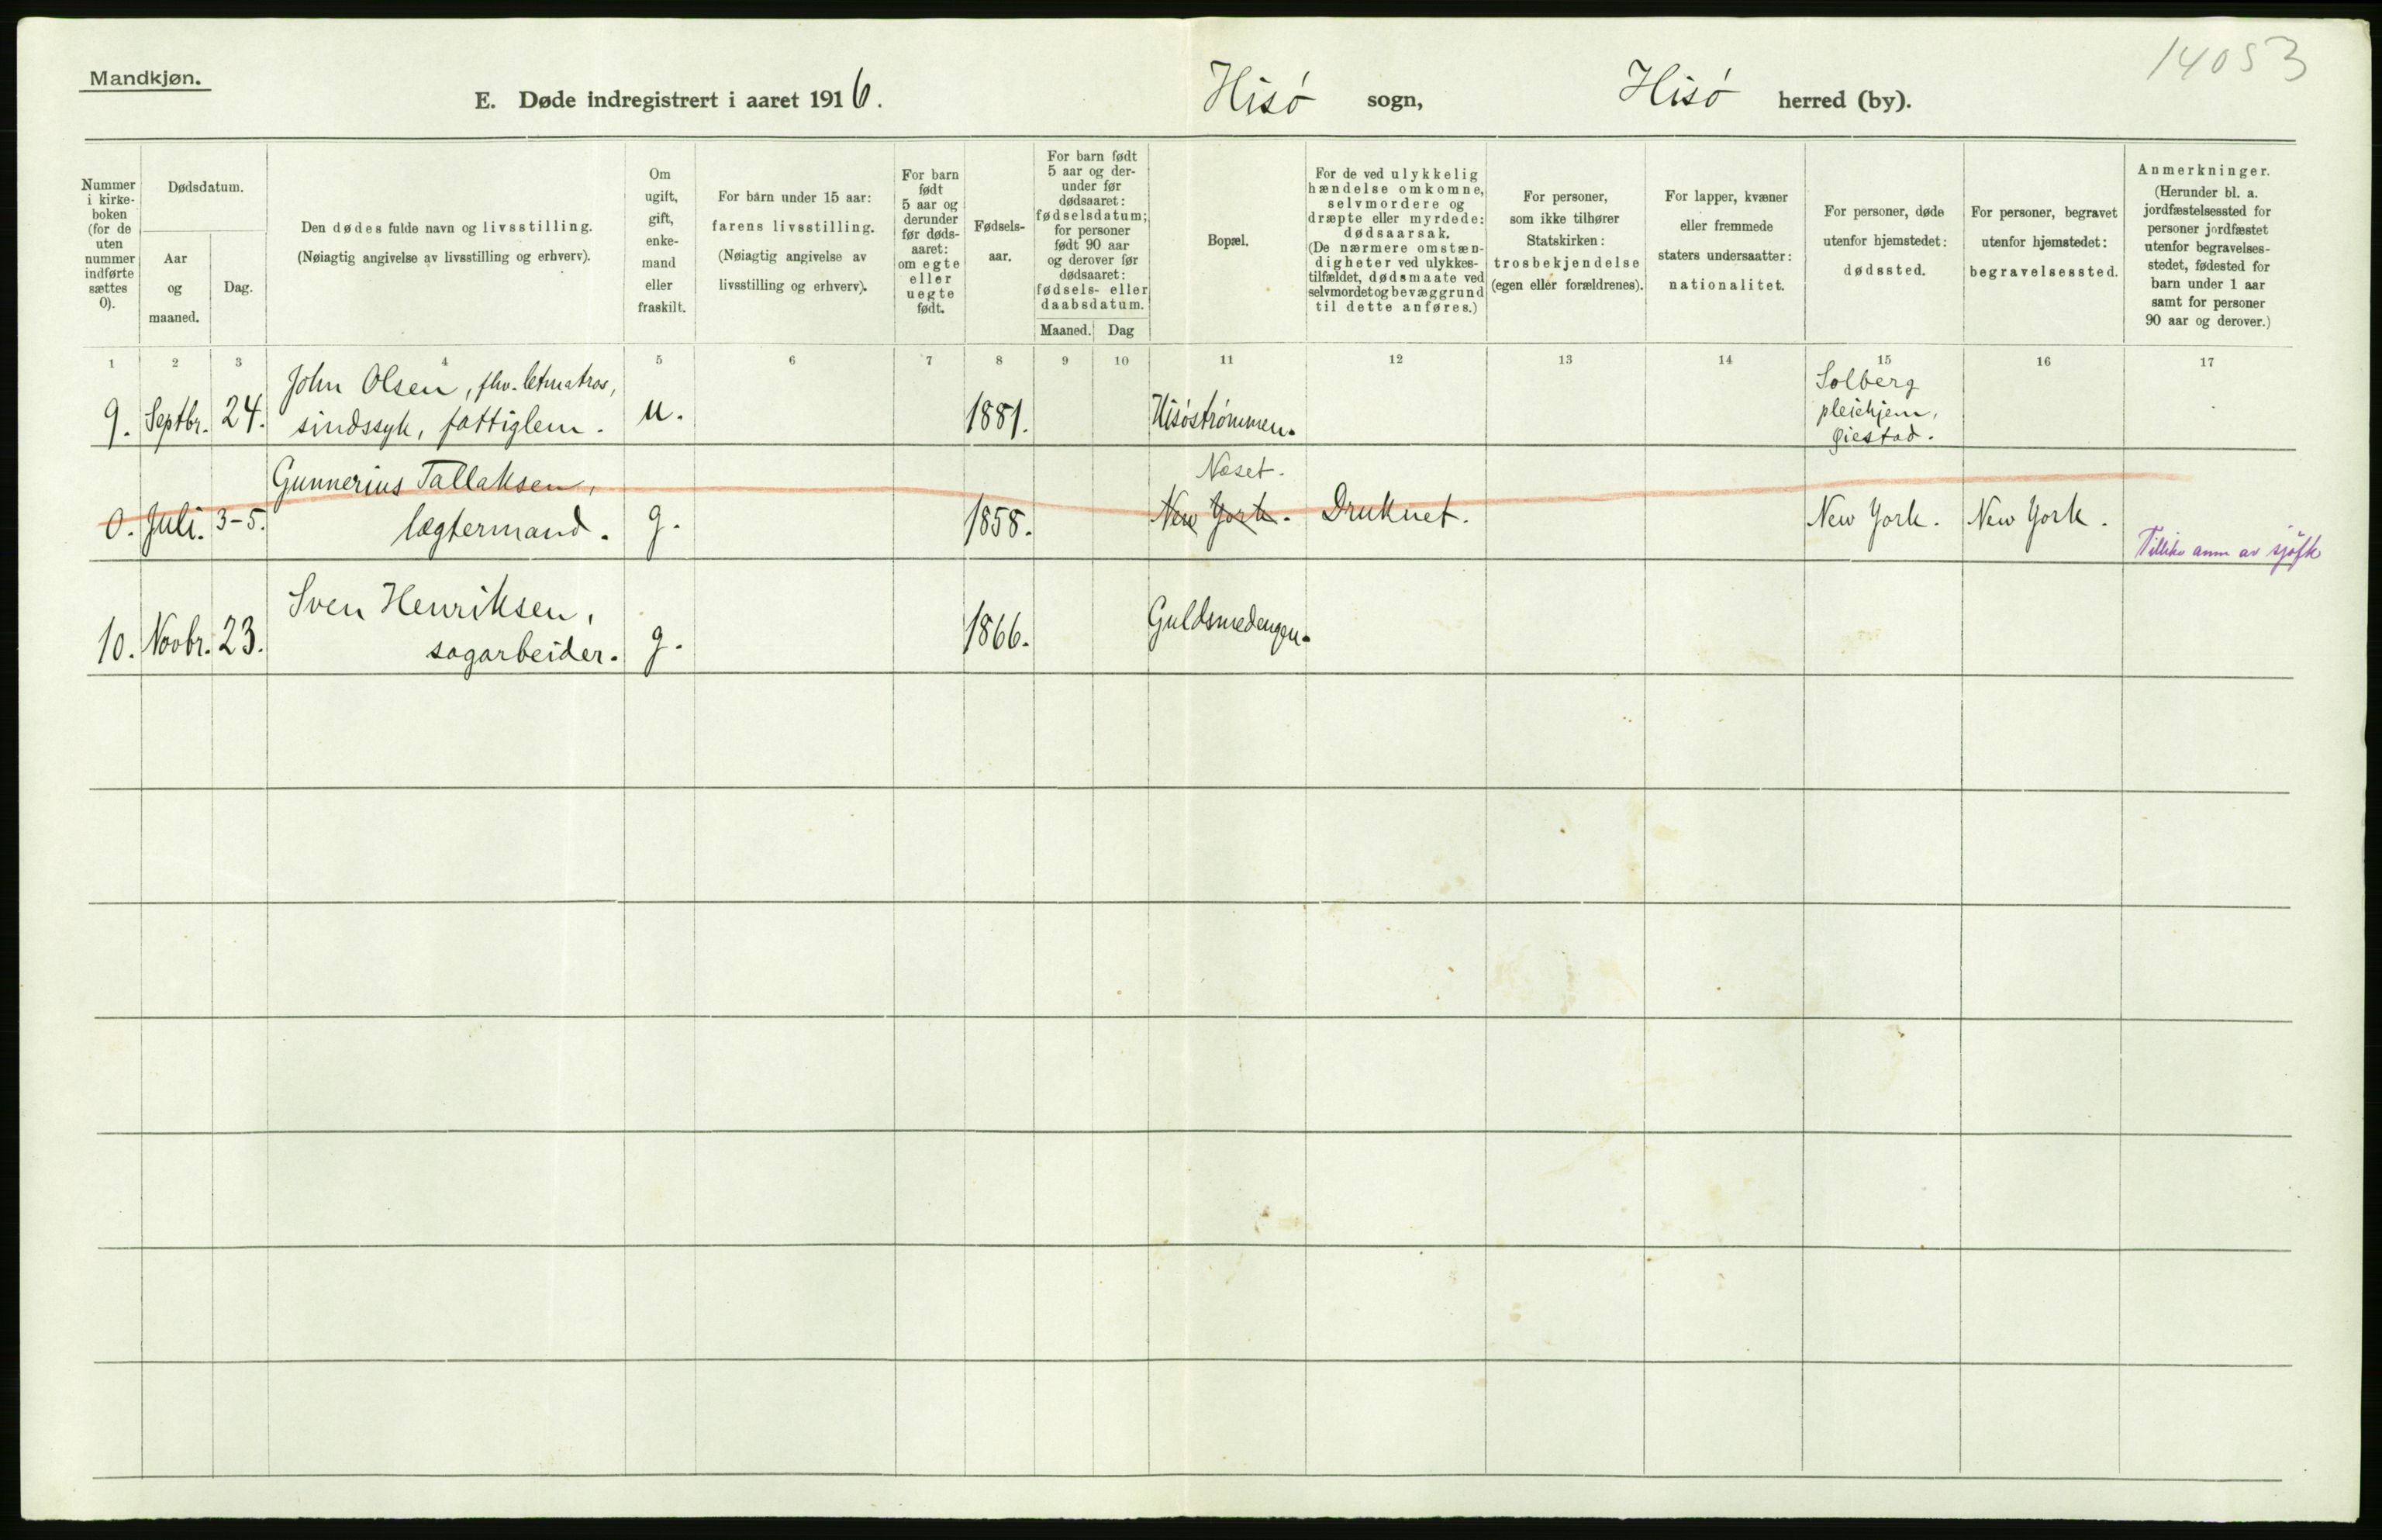 14053
Mandkjøn.
E. Døde indregistrert i aaret 1916.
Hisö sogn,
Hisö herred (by).
Nummer
i kirke-
boken
(for de
uten
nummer
indførte
sættes
0).
Dødsdatum.
Aar
og
maaned.
Dag.
Den dødes fulde navn og livsstilling.
(Nøiagtig angivelse av livsstilling og erhverv).
Om
ugift,
gift,
enke-
mand
eller
fraskilt.
For barn under 15 aar:
farens livsstilling.
(Nøiagtig angivelse av
livsstilling og erhverv).
For barn
født
5 aar og
derunder
før døds-
aaret:
om egte
eller
uegte
født.
Fødsels-
aar.
For barn født
5 aar og der-
under før
dødsaaret:
fødselsdatum;
for personer
født 90 aar
og derover før
dødsaaret:
fødsels- eller
daabsdatum.
Maaned. Dag
Bopæl.
For de ved ulykkelig
hændelse omkomne,
selvmordere og
dræpte eller myrdede:
dødsaarsak.
(De nærmere omstæn-
digheter ved ulykkes-
tilfældet, dødsmaate ved
selvmordet og bevæggrund
til dette anføres.)
For personer,
som ikke tilhører
Statskirken:
trosbekjendelse
(egen eller forældrenes).
For lapper, kvæner
eller fremmede
staters undersaatter:
nationalitet.
For personer, døde
utenfor hjemstedet:
dødssted.
For personer, begravet
utenfor hjemstedet:
begravelsessted.
Anmerkninger.
(Herunder bl. a.
jordfæstelsessted for
personer jordfæstet
utenfor begravelses-
stedet, fødested for
barn under 1 aar
samt for personer
90 aar og derover.)
1 2 3 4 5 6 7 8 9 10 11 12 13 14 15 16 17
John Olsen, fhv. letmatros,
9. Septbr. 24. sindssyk, fattiglem. u. 1881. Hisöströmmen.
Solberg
pleiehjem,
Øiestad.
Gunnerius Tallaksen,
Næset.
0. Juli. 3-5. lægtermand. g. 1858. New York. Druknet. New York. New York.
Tillike anm av sjöfk
Sven Henriksen,
10. Novbr. 23. sagarbeider. g. 1866. Guldsmedengen.